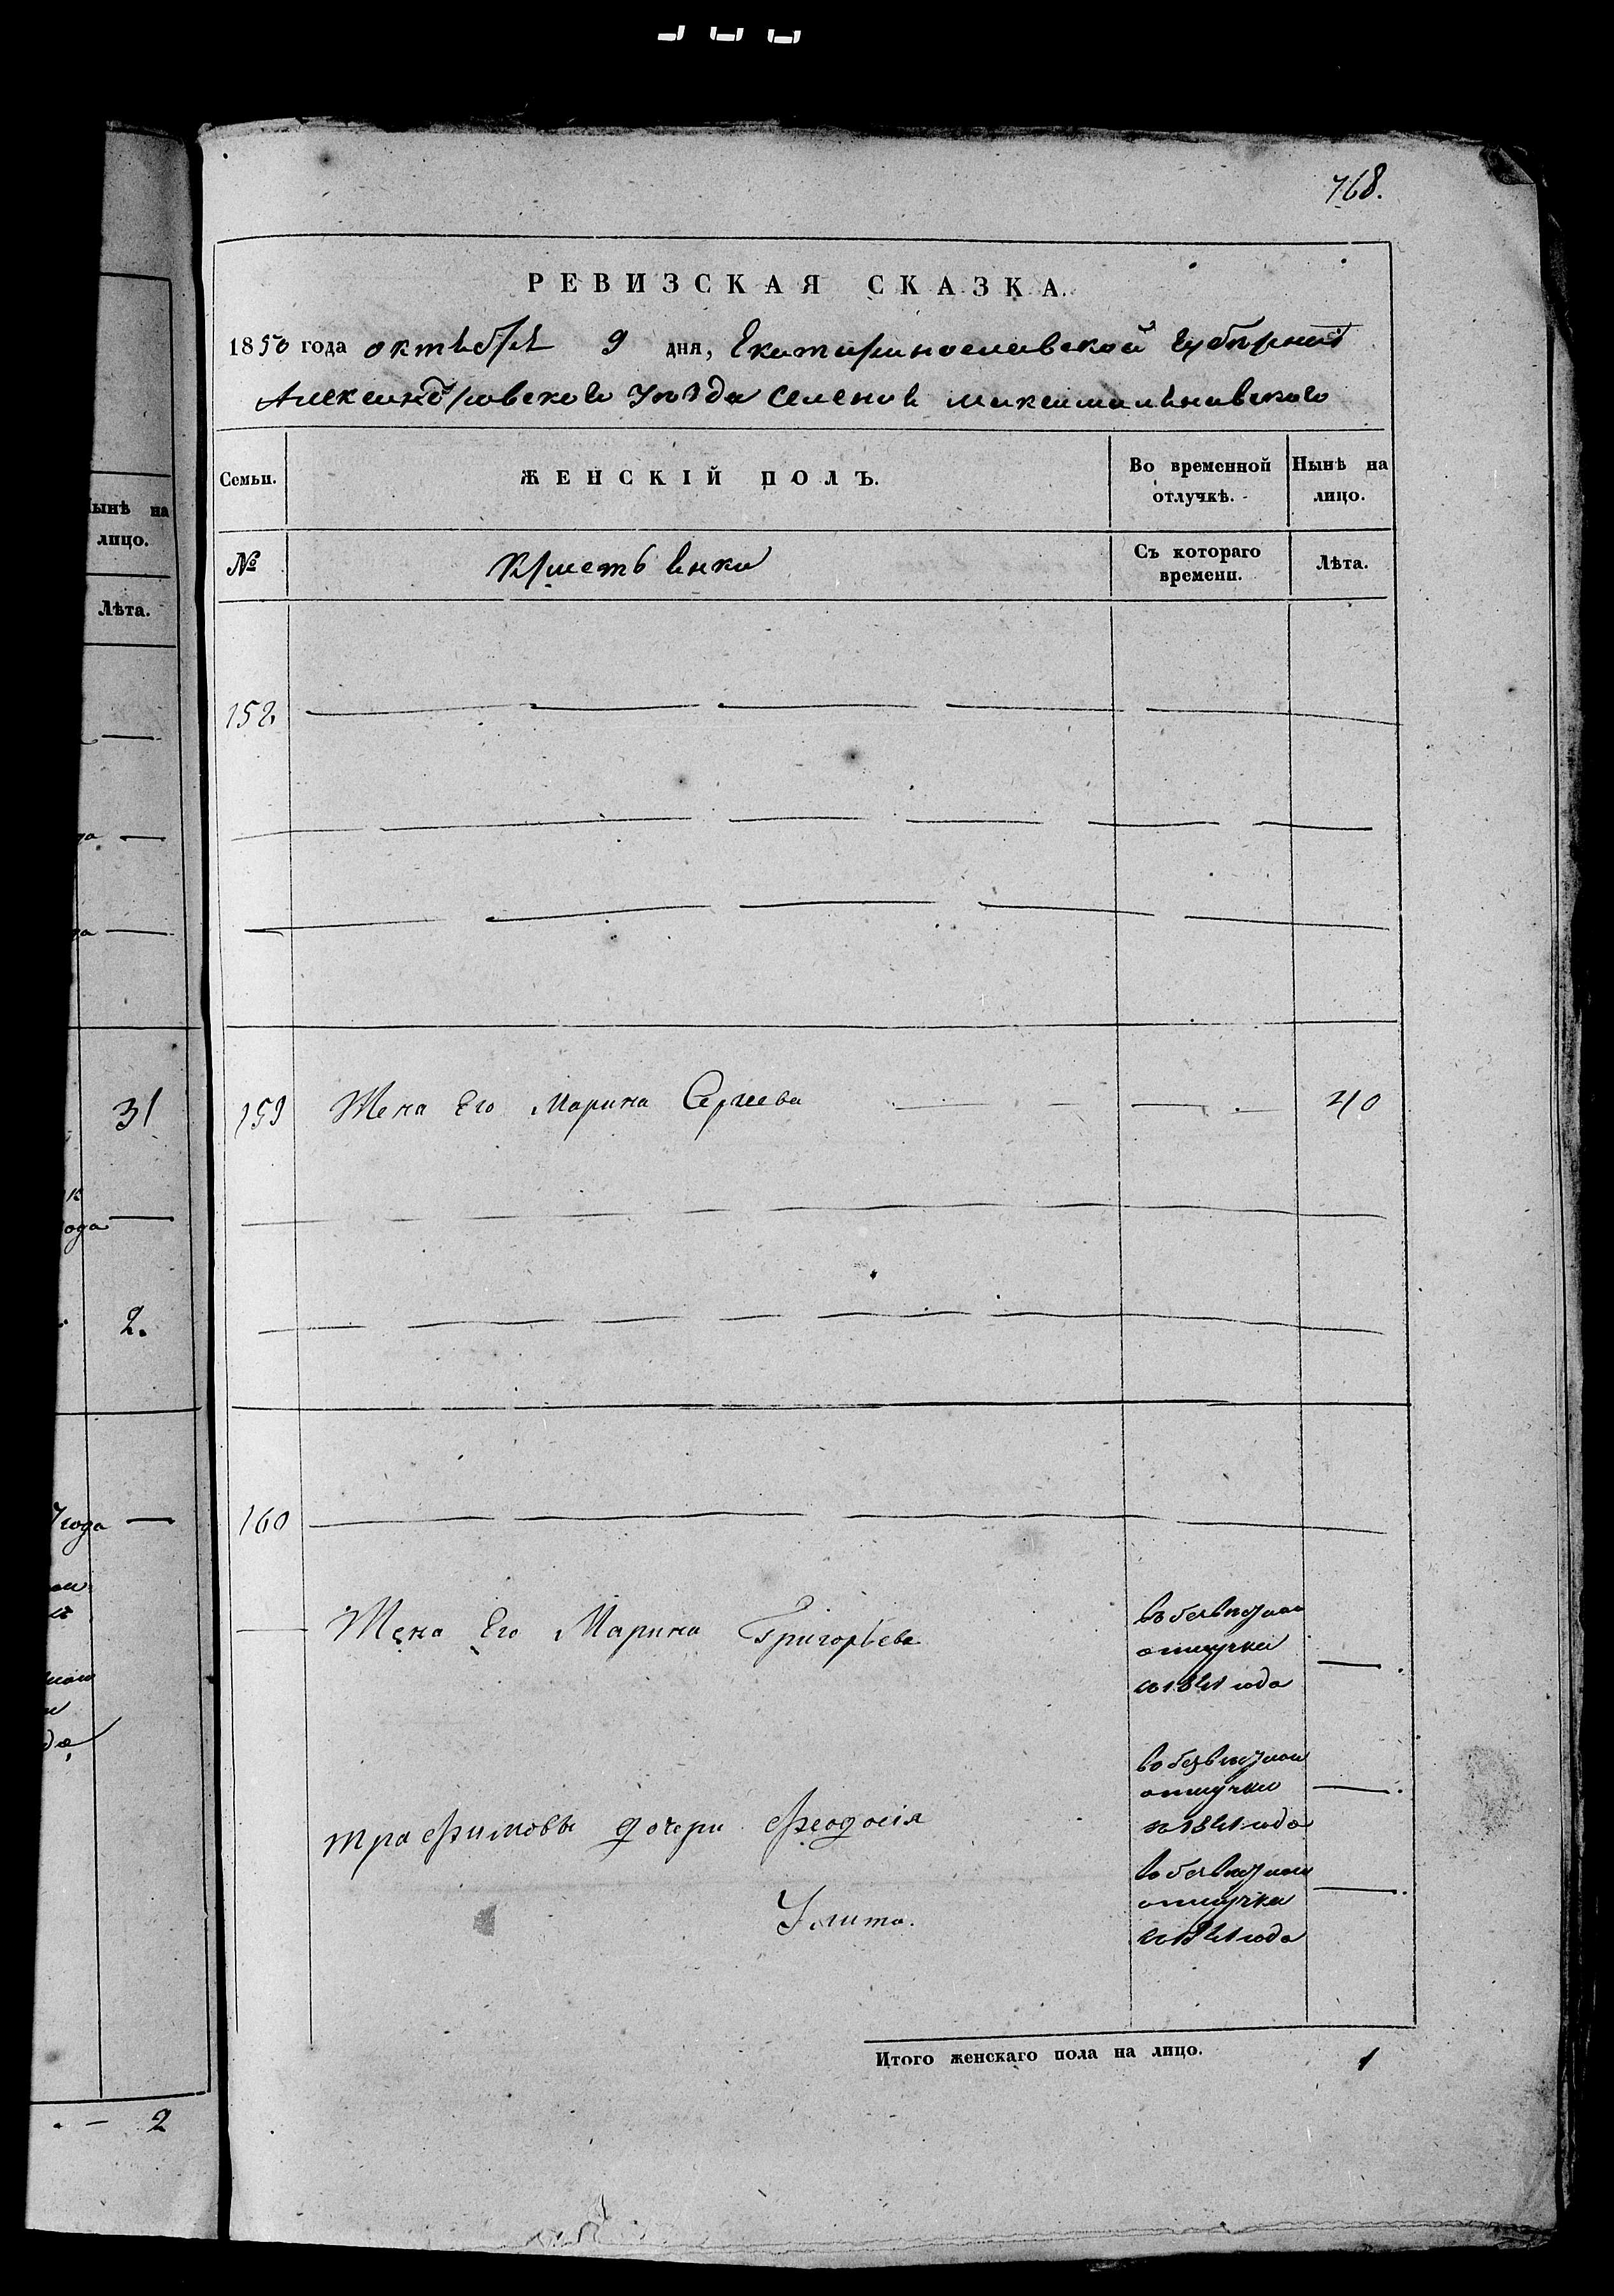 768.
РЕВИЗСКАЯ СКАЗКА.
1850 года октября 9 дня, Екатеринославской губернии
Александровского уезда селения Максимильяновского
Семьи. ЖЕНСКІЙ ПОЛЪ. Во временной отлучкѣ. Нынѣ на лицо.
№ Крестьянки Съ котораго времени. Лѣта.
ынѣ на
лицо.
Лѣта.
158
31
159 Жена Его Марина Сергеева 40
ода
2.
160
года
Жена Его Марина Григорьева
въ безвестной
отлучки
съ 1841 года
Трафимовы дочери Феодосія
въ безвестной
отлучки
съ 1841 года
Улита.
въ безвестной
отлучки
съ 1841 года
Итого женскаго пола на лицо. 1
2